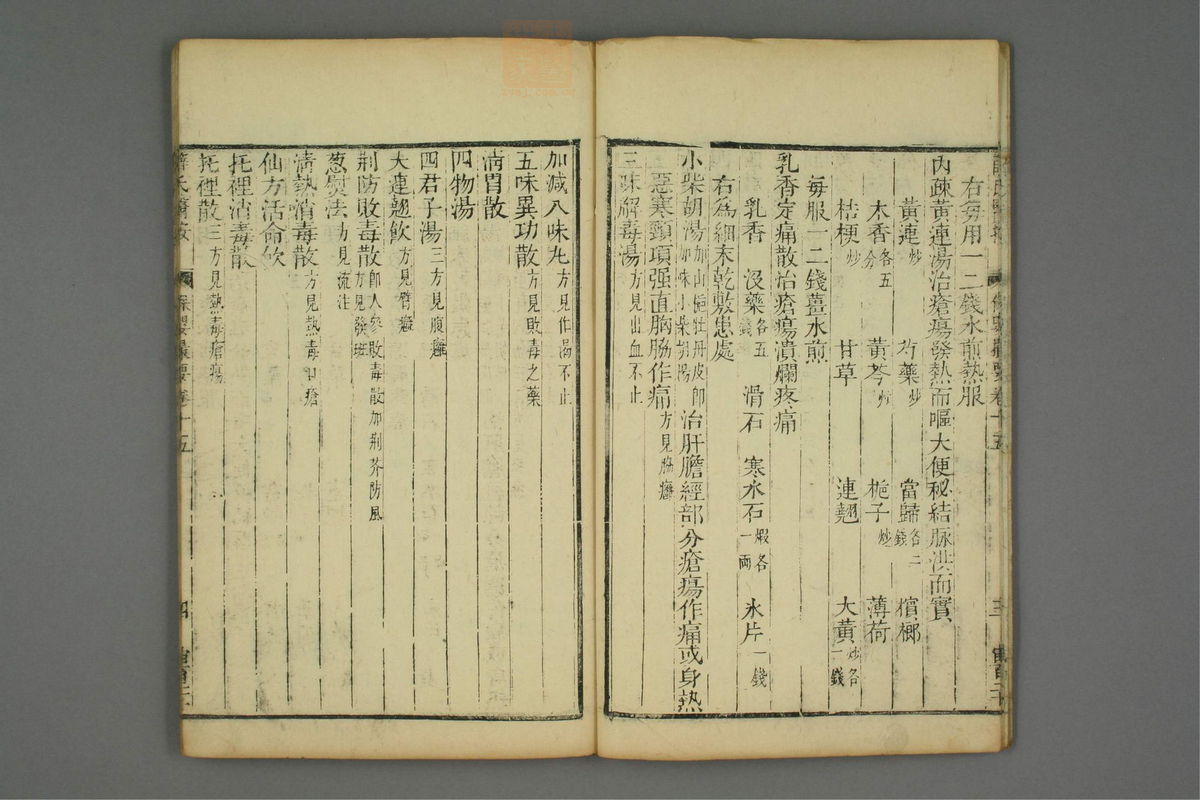 右每用一二錢水煎熱服
內疎黃連湯治瘡瘍發熱而嘔大便秘結脉洪而實
黃連炒 芍藥炒 當歸各二錢 檳榔
木香各五分 黃芩炒 梔子炒 薄荷
桔梗炒 甘草 連翹 大黃炒各一錢
每服一二錢薑水煎
乳香定痛散治瘡瘍潰爛疼痛
乳香 沒藥各五錢 滑石 寒水石煆各一兩 氷片一錢
右為細末乾敷患處
小柴胡湯加山梔牡丹皮卽加味小柴胡湯治肝膽經部分瘡瘍作痛或身熱
惡寒頸項强直胸脇作痛方見脇癰
三味解毒湯方見出血不止
加減八味丸方見作渴不止
五味異功散方見敗毒之藥
淸胃散
四物湯
四君子湯三方見腹癰
大連翹飲方見臂癰
荆防敗毒散卽人參敗毒散加荆芥防風方見發斑
葱熨法方見流注
淸熱消毒散方見熱毒口瘡
仙方活命飮
托裡消毒散
托裡散三方見熱毒瘡瘍
薛氏醫按 保嬰撮要卷十五 四